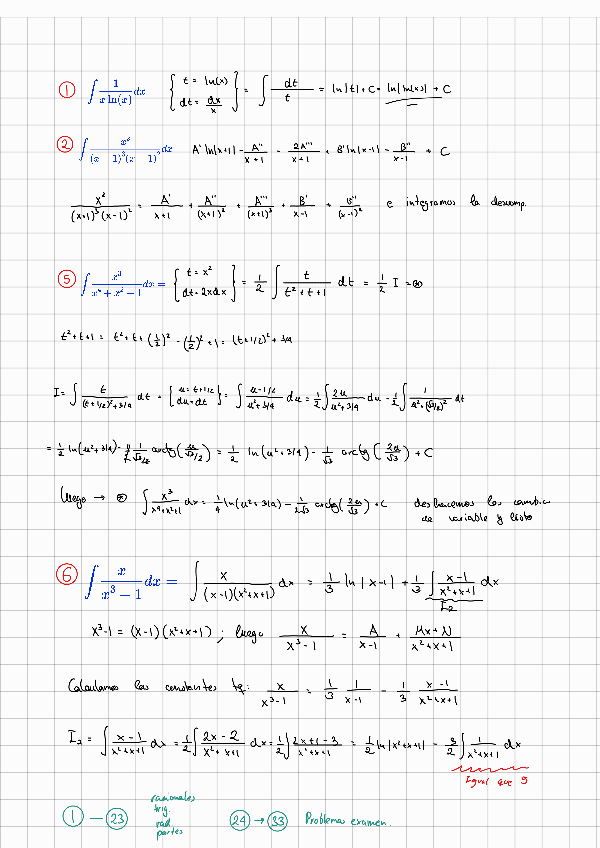 ① ∫ 1/(x ln(x)) dx { t = ln(x) ; dt = dx/x } = ∫ dt/t = ln|t| + C = ln|ln(x)| + C
② ∫ x²/((x − 1)³(x − 1)²) dx A' ln|x+1| − A''/(x+1) − 2A'''/(x+1) + B' ln|x−1| − B''/(x−1) + C
x²/((x+1)³(x−1)²) = A'/(x+1) + A''/(x+1)² + A'''/(x+1)³ + B'/(x−1) + B''/(x−1)² e integramos la descomp.
⑤ ∫ x³/(x⁴ + x² − 1) dx = { t = x² ; dt = 2xdx } = 1/2 ∫ t/(t² + t + 1) dt = 1/2 I = ⊛
t² + t + 1 = t² + t + (1/2)² − (1/2)² + 1 = (t+1/2)² + 3/4
I = ∫ t/((t+1/2)² + 3/4) dt = { u = t+1/2 ; du = dt } = ∫ (u−1/2)/(u² + 3/4) du = 1/2 ∫ 2u/(u² + 3/4) du − 1/2 ∫ 1/(u² + (√3/2)²) dt
= 1/2 ln(u² + 3/4) − 1/2 1/(√3/2) arctg(u/(√3/2)) = 1/2 ln(u² + 3/4) − 1/√3 arctg(2u/√3) + C
luego → ⊛ ∫ x³/(x⁴+x²+1) dx = 1/4 ln(u² + 3/4) − 1/(2√3) arctg(2u/√3) + C deshacemos los cambios
de variable y listo
⑥ ∫ x/(x³ − 1) dx = ∫ x/((x−1)(x²+x+1)) dx = 1/3 ln|x−1| + 1/3 ∫ (x−1)/(x²+x+1) dx
I₂
x³−1 = (x−1)(x²+x+1) ; luego x/(x³−1) = A/(x−1) + (Mx+N)/(x²+x+1)
Calculamos las constantes tq: x/(x³−1) = 1/3 1/(x−1) − 1/3 (x−1)/(x²+x+1)
I₂ = ∫ (x−1)/(x²+x+1) dx = 1/2 ∫ (2x−2)/(x²+x+1) dx = 1/2 ∫ (2x+1−3)/(x²+x+1) = 1/2 ln|x²+x+1| − 3/2 ∫ 1/(x²+x+1) dx
Igual que 5
① — ㉓ racionales
trig.
rad.
partes
㉔ → ㉝ Problemas examen.